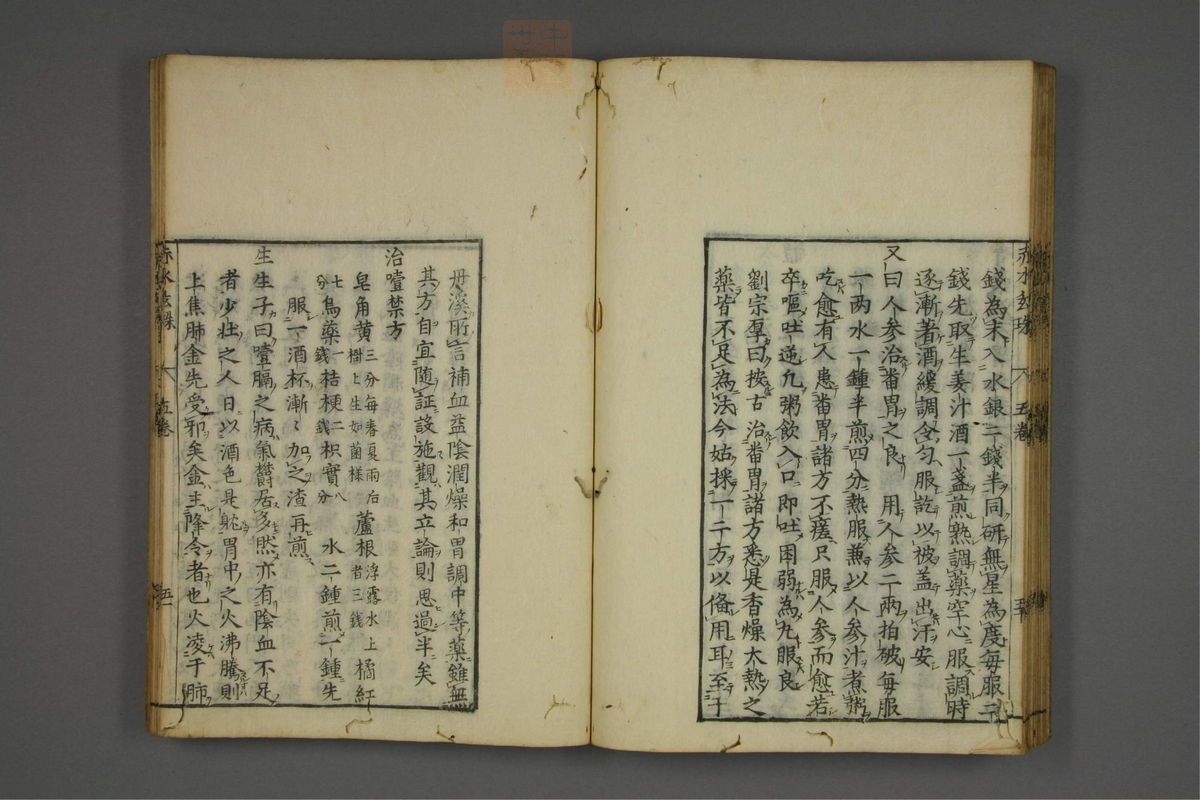 錢為末入水銀二錢半同研無星為度每服二
錢先取生姜汁酒一盞煎熟調藥空心服調時
逐漸著酒緩調令勻服訖以被盖出汗安
又曰人參治畨胃之良 用人參二兩拍破每服
一兩水一鍾半煎四分熱服兼以人參汁煮粥
吃愈有人患畨胃諸方不瘥只服人參而愈若
卒嘔吐逆凢粥飲入口即吐困弱為九服良
劉宗厚曰按古治畨胃諸方悉是香燥大熱之
藥皆不足為法今姑採一二方以俻用耳至于
丹溪所言補血益陰潤燥和胃調中等藥雖無
其方自宜随証設施觀其立論則思過半矣
治噎禁方
皂角黄三分每春夏雨后樹上生如菌樣蘆根浮露水上者三錢橘紅
七分烏藥一錢桔梗二錢枳實八分 水二鍾煎一鍾先
服一酒杯漸〻加之渣再煎
生生子曰噎膈之病氣欝居多然亦有陰血不足
者少壯之人日以酒色是躭胃中之火沸騰則
上焦肺金先受邪矣金主降令者也火凌于肺
赤水玄珠 五卷 五十
赤水玄珠 五卷